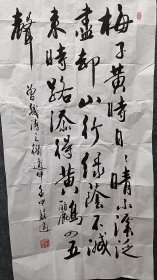 梅子黄時日〻晴小溪泛
盡却山行绿蔭不減
来時路添得黄鸝四五
聲
曾幾詩三衢道中